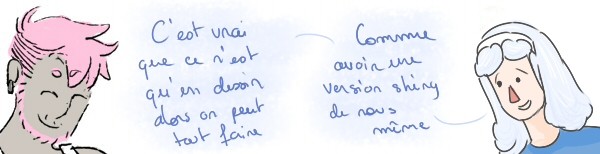 C'est vrai
que ce n'est
qu'en dessin
alors on peut
tout faire
Comme
avoir une
version shiny
de nous
même